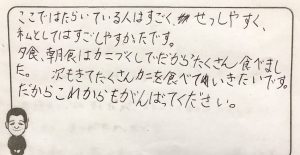 ここではたらいている人はすごく、せっしやすく、
私としてはすごしやすかたです。
夕食、朝食はカニづくしでだからたくさん食べまし
た。 次もきてたくさんカニを食べていきたいです。
だからこれからもがんばってください。